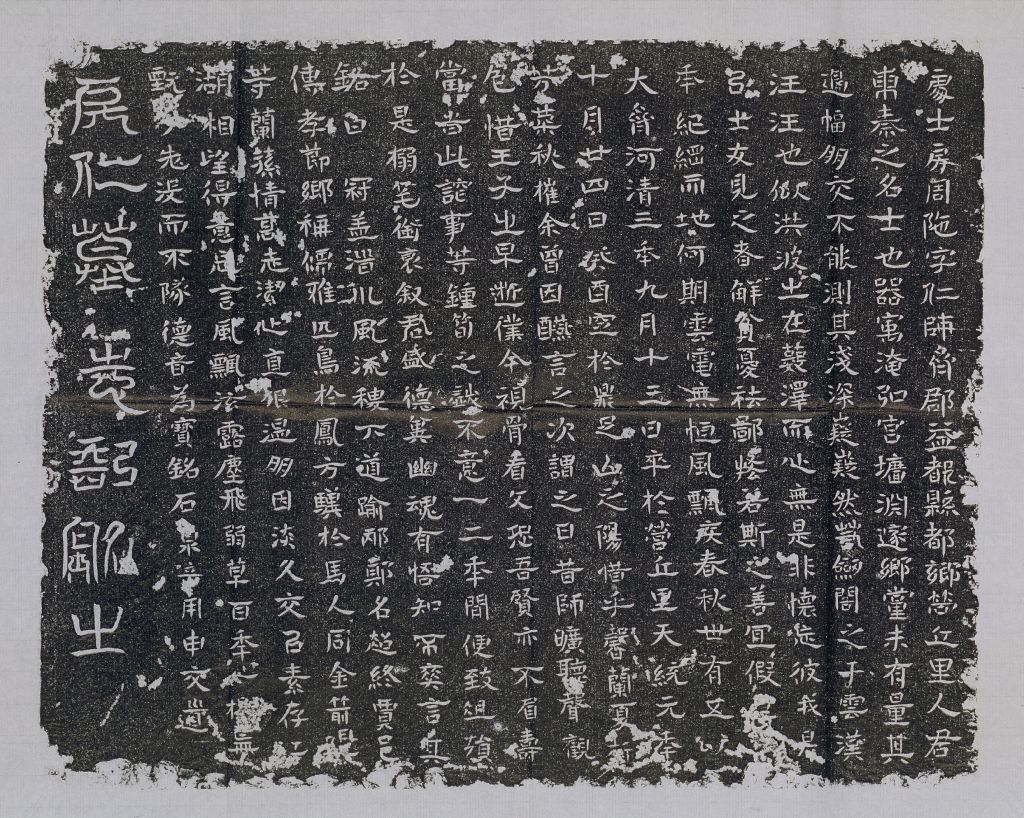 處士房周陁字仁師齊郡益都縣都鄉營丘里人君
東秦之名士也器寓淹弘宮墻淵邃鄉黨未有量其
邊幅朋交不能測其淺深嶷嶷然若嵩閣之干雲漢
汪汪也似洪波之在藪澤而心無是非懷忘彼我
邑士友見之者鮮貪憂祛鄙悋若斯之善宜假
年紀綱而地何期雲電無恒風飄疾春秋卅有五以
大齊河清三年九月十三日卒於營丘里天統元年
十月廿四日癸酉窆於鼎足山之陽惜乎馨蘭夏
芳菜秋摧余曾因醼言之次謂之曰昔師曠聽聲觀
色惜王子之早逝僕今視骨看文恐吾賢亦不眉壽
當尚此談事等鍾荀之戲不意一二年間便致徂殞
於是搦筆銜哀叙君盛德冀幽魂有悟知不爽言其
銘曰 冠盖潛川風流稷下道踰邴鄭名超終賈邑
傳孝節鄉稱儒雅匹鳥於鳳方驥於馬人同金箭
等蘭蓀情高志潔心直狠温朋因淡久交以素存
湖相望得意忘言風飄泫露塵飛弱草百年心
先没而不隊德音為寶銘石泉用申交
房仁墓志記銘之